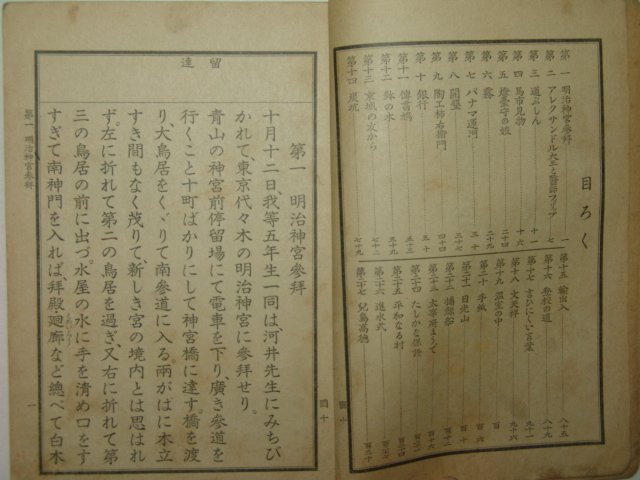 目ろく
第一 明治神宮參拜 一
第二 アレクサンドル大王と醫師フィリップ 七
第三 道ぶしん 十一
第四 馬市見物 十六
第五 燈臺守の娘 二十四
第六 霧 二十九
第七 パナマ運河
第八 開墾 三十七
第九 陶工柿右衞門
第十 銀行
第十一 傳書鳩
第十二 鉢の木 五十九
第十三 京城の友から 七十三
第十四 炭坑 七十九
第十五 輸出入 八十五
第十六 登校の道 八十九
第十七 言ひにくい言葉 九十一
第十八 文天祥 九十六
第十九 温室の中 百
第二十 手紙 百
第二十一 日光山
第二十二 捕鯨船 百十二
第二十三 太宰府まうで 百十六
第二十四 たしかな保證
第二十五 平和なる村
第二十六 進水式
第二十七 兒島高德 百三十
第一 明治神宮參拜
十月十二日、我等五年生一同は、河井先生にみちび
かれて、東京代々木の明治神宮に參拜せり。
青山の神宮前停留場にて電車を下り、廣き參道を
行くこと十町ばかりにして神宮橋に達す。橋を渡
り大鳥居をくゞりて南參道に入る。兩がはに木立
すき間もなく茂りて、新しき宮の境内とは思はれ
ず。左に折れて第二の鳥居を過ぎ、又右に折れて第
三の鳥居の前に出づ。水屋の水に手を清め口をす
すぎて南神門を入れば、拜殿・廻廊など總べて白木
留
達
第一 明治神宮參拜
一